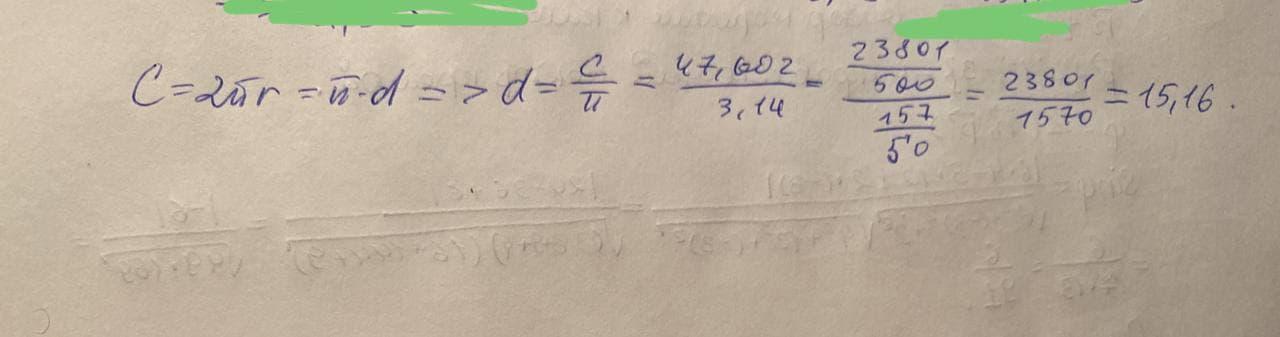 C = 2πr = π·d => d = C/π = 47,602/3,14 = (23801/500)/(157/50) = 23801/1570 = 15,16.